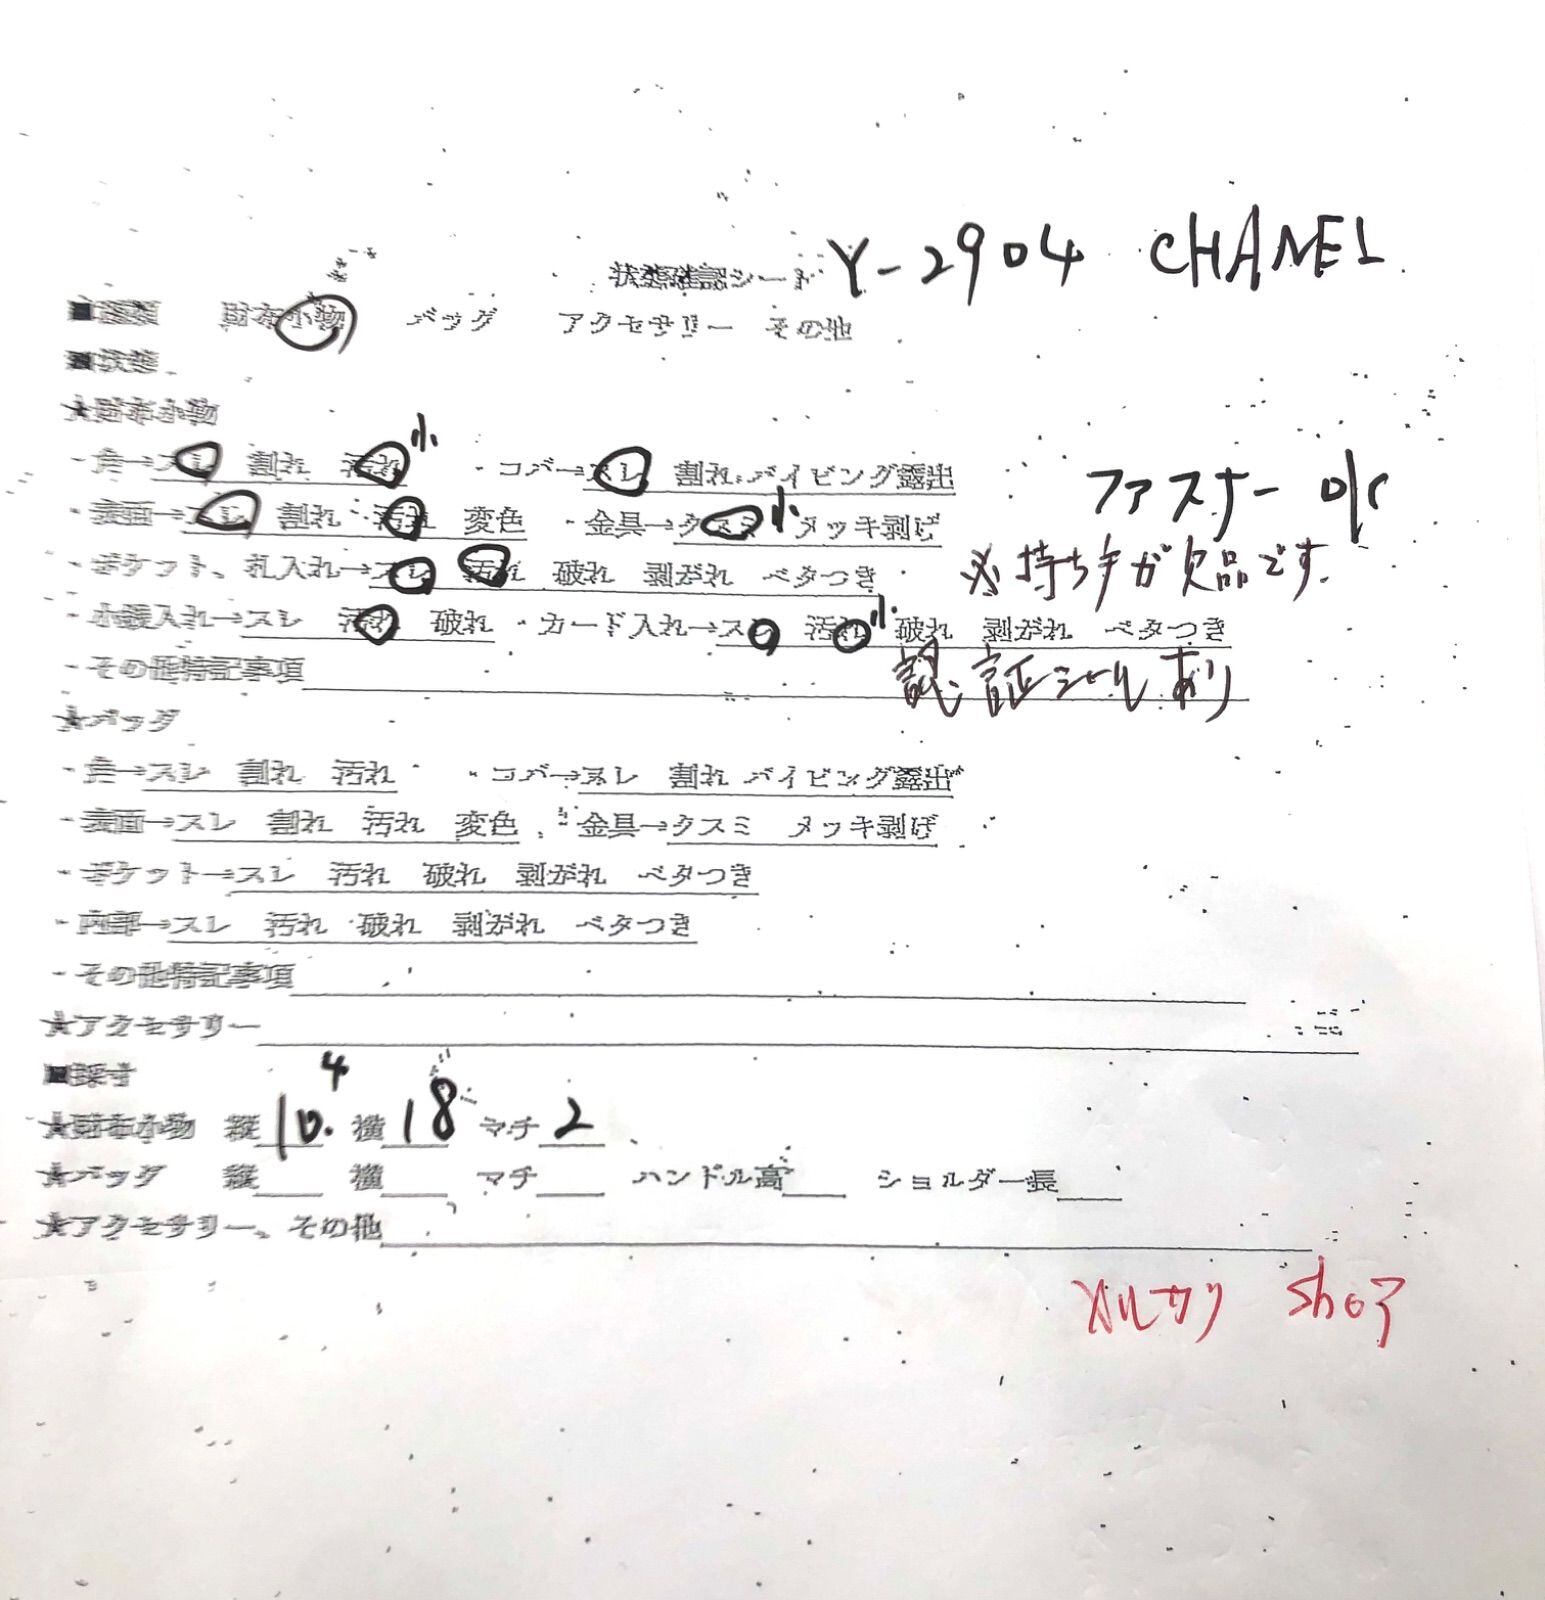 状態確認シート Y-2904 CHANEL
■種類 財布小物 バッグ アクセサリー その他
■状態
★財布小物
・角→スレ 割れ 汚れ 小 ・コバ→スレ 割れ パイピング露出
ファスナー
・表面→スレ 割れ 汚れ 変色 ・金具→クスミ 小 メッキ剥げ
※持ち手が欠品です.
・ポケット、札入れ→スレ 汚れ 破れ 剥がれ ベタつき
・小銭入れ→スレ 汚れ 破れ ・カード入れ→スレ 汚れ 小 破れ 剥がれ ベタつき
・その他特記事項 認証シールあり
★バッグ
・角→スレ 割れ 汚れ ・コバ→スレ 割れ パイピング露出
・表面→スレ 割れ 汚れ 変色 ・金具→クスミ メッキ剥げ
・ポケット→スレ 汚れ 破れ 剥がれ ベタつき
・内部→スレ 汚れ 破れ 剥がれ ベタつき
・その他特記事項
★アクセサリー
■採寸
★財布小物 縦10.4 横18 マチ2
★バッグ 縦 横 マチ ハンドル高 ショルダー長
★アクセサリー、その他
メルカリ